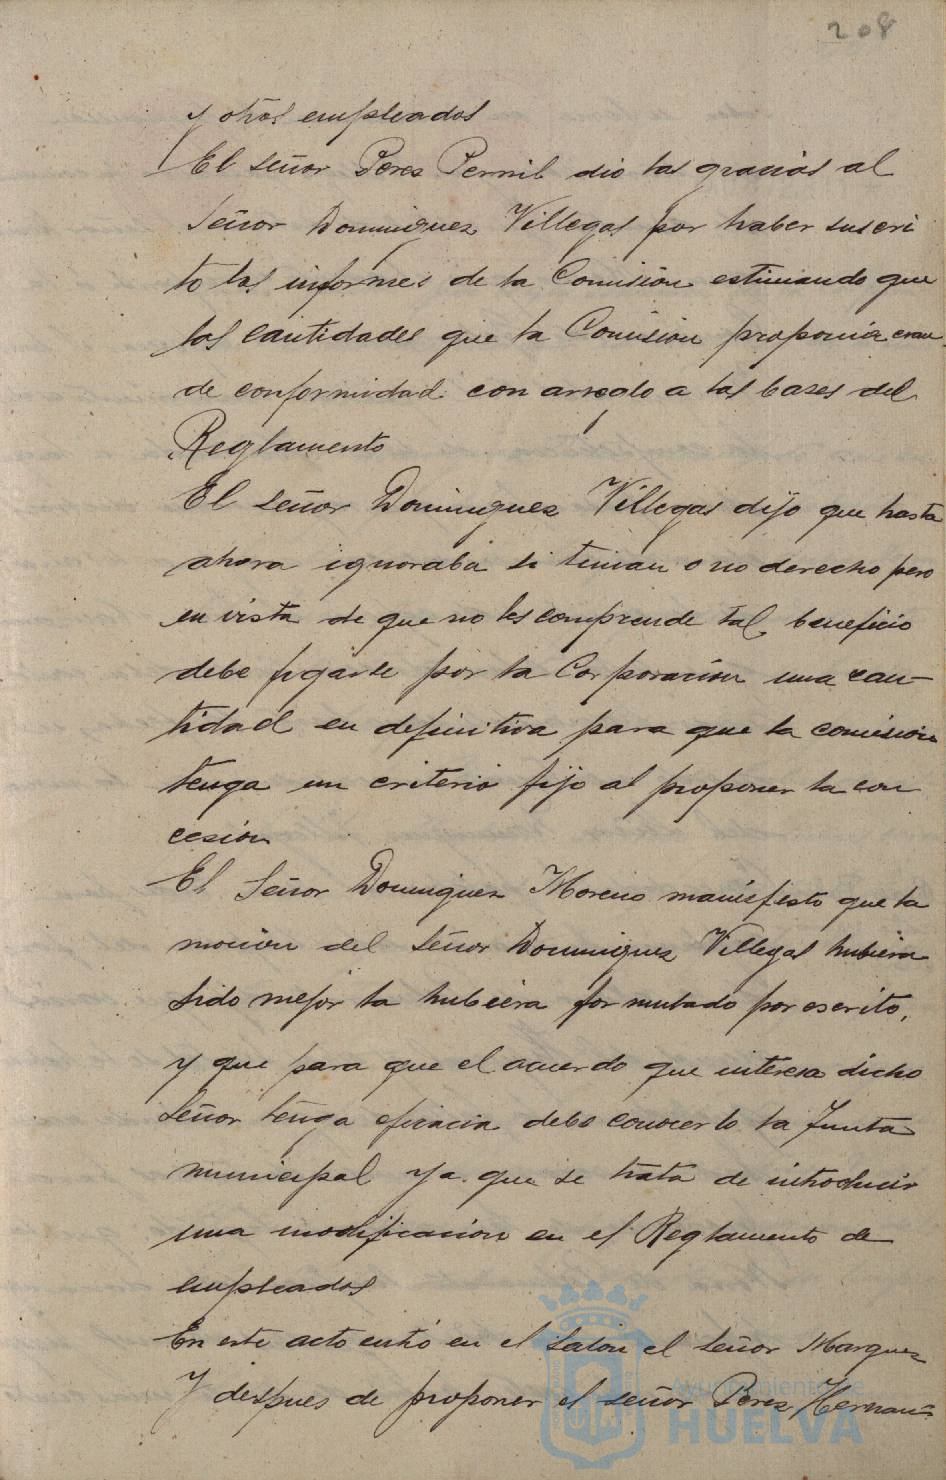 208
y otros empleados
El señor Perez Pernil dio las gracias al
señor Dominguez Villegas por haber suscri
to los informes de la Comision estimando que
las cantidades que la Comision proponia eran
de conformidad con arreglo a las bases del
Reglamento
El señor Dominguez Villegas dijo que hasta
ahora ignoraba si tenian o no derecho pero
en vista de que no les comprende tal beneficio
debe fijarse por la Corporacion una can-
tidad en definitiva para que la comision
tenga un criterio fijo al proponer la con
cesion
El Señor Dominguez Moreno manifesto que la
mocion del señor Dominguez Villegas hubiera
sido mejor la hubiera formulado por escrito,
y que para que el acuerdo que interesa dicho
señor tenga eficacia debe conocerlo la Junta
municipal ya que se trata de introducir
una modificacion en el Reglamento de
empleados
En este acto entró en el salon el señor Marquez
Y despues de proponer el señor Perez Hernan-
Ayuntamiento de
HUELVA